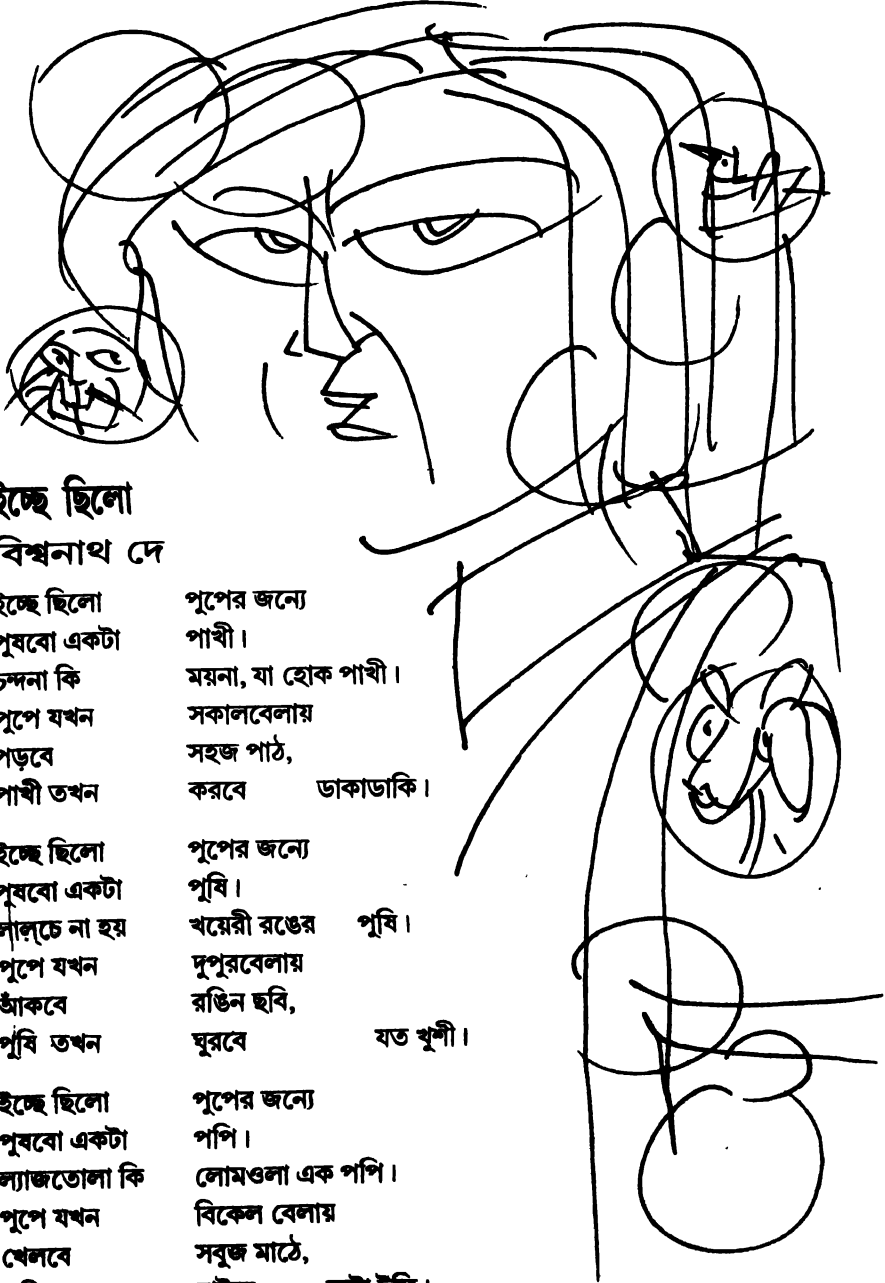 ইচ্ছে ছিলো
বিশ্বনাথ দে
ইচ্ছে ছিলো পুপের জন্যে
পুষবো একটা পাখী।
চন্দনা কি ময়না, যা হোক পাখী।
পুপে যখন সকালবেলায়
পড়বে সহজ পাঠ,
পাখী তখন করবে ডাকাডাকি।
ইচ্ছে ছিলো পুপের জন্যে
পুষবো একটা পুষি।
লাল্‌চে না হয় খয়েরী রঙের পুষি।
পুপে যখন দুপুরবেলায়
আঁকবে রঙিন ছবি,
পুষি তখন ঘুরবে যত খুশী।
ইচ্ছে ছিলো পুপের জন্যে
পুষবো একটা পপি।
ল্যাজতোলা কি লোমওলা এক পপি।
পুপে যখন বিকেল বেলায়
খেলবে সবুজ মাঠে,